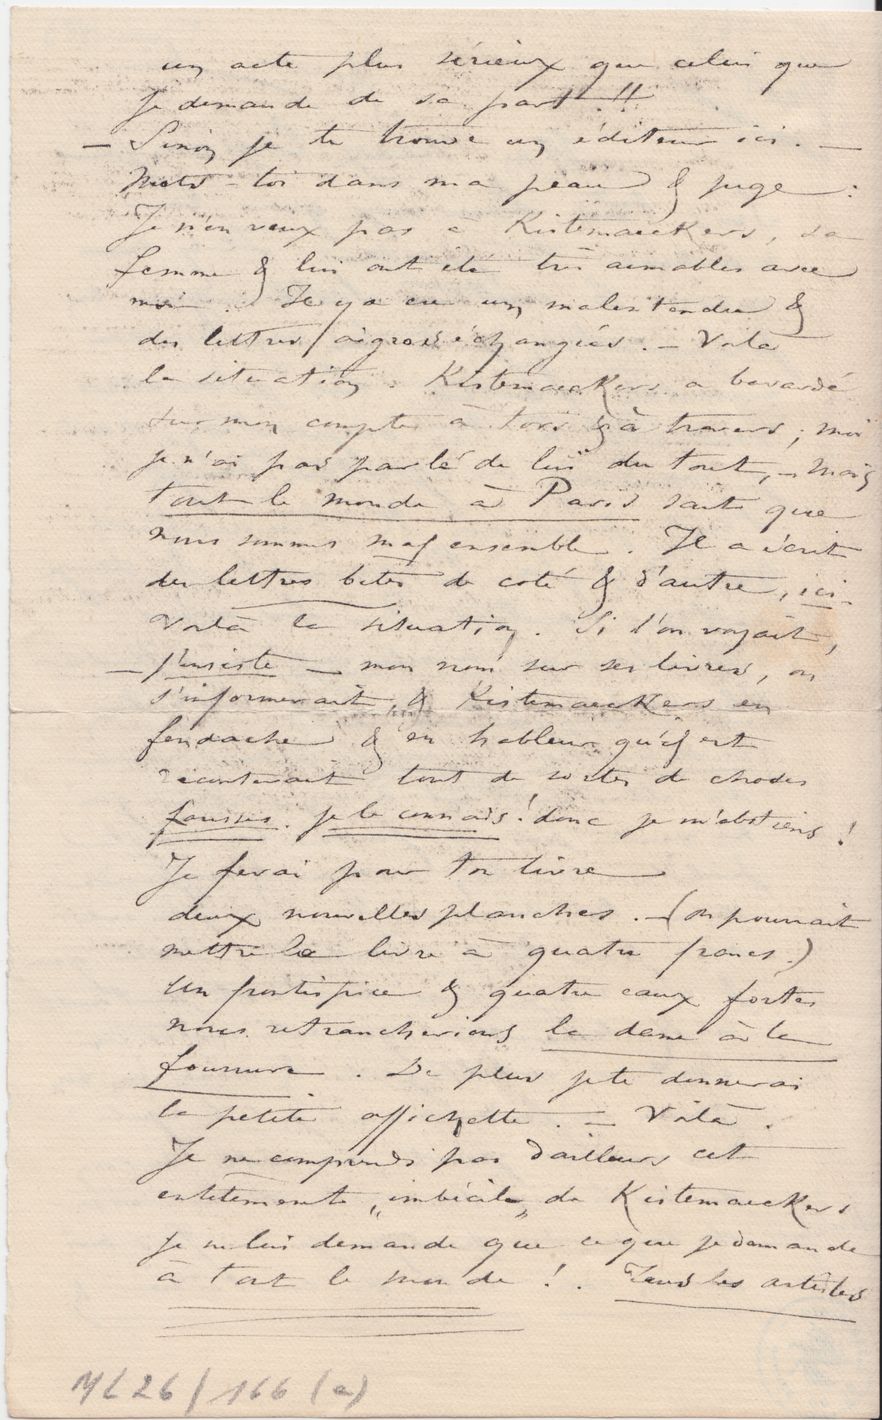 un acte plus sérieux que celui que
je demande de sa part !!
— Sinon je te trouve un éditeur ici. —
Mets-toi dans ma peau & juge :
Je n'en veux pas à Kistemaeckers, sa
femme & lui ont été très aimables avec
moi. Il y a eu un malentendu &
des lettres aigres échangées. — Voilà
la situation. Kistemaeckers a bavardé
sur mon compte à tors & à travers ; moi
je n'ai pas parlé de lui du tout, — mais
tout le monde à Paris sait que
nous sommes mal ensemble. Il a écrit
des lettres bêtes de coté & d'autre, ici.
Voilà la situation. Si l'on voyait,
— j'insiste — mon nom sur ses livres, on
s'informerait, & Kistemaeckers en
& en hableur qu'il est
raconterait tout de sortes de choses
fausses. je le connais ! donc je m'abstiens !
Je ferai pour ton livre
deux nouvelles planches. — (on pourrait
mettre le livre à quatre francs.)
Un frontispice & quatre eaux fortes
nous retrancherions la dame à la
fourrure. De plus je te donnerai
la petite affichette. — Voilà.
Je ne comprends pas d'ailleurs cet
entêtement „imbécile„ de Kistemaeckers
je ne lui demande que ce que je demande
à tout le monde !. Tous les artistes
ML 26 / 166 (a)